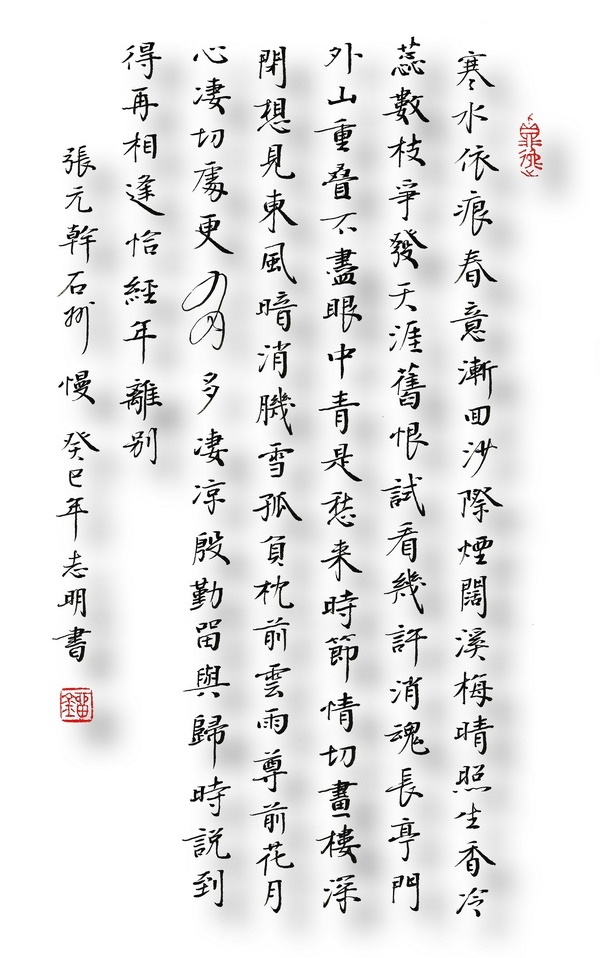 寒水依痕春意漸回沙際煙闊溪梅晴照生香冷
蕊數枝爭發天涯舊恨試看幾許消魂長亭門
外山重疊不盡眼中青是愁来時節情切畫樓深
閉想見東風暗消雪孤負枕前雲雨尊前花月
心凄切處更多凄凉殷勤留與歸時說到
得再相逢恰經年離別
張元幹石州慢 癸巳年志明書